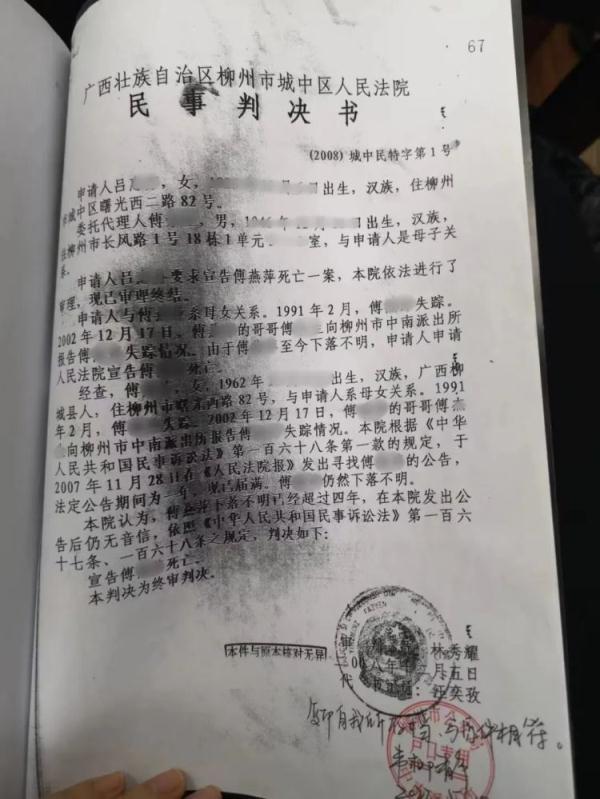 67
广西壮族自治区柳州市城中区人民法院
民事判决书
(2008)城中民特字第1号
申请人吕 ,女, 出生,汉族,住柳州
市城中区曙光西二路82号。
委托代理人傅 ,男, 出生,汉族,
住柳州市长风路1号18栋1单元 室,与申请人是母子关
系。
申请人吕 要求宣告傅燕萍死亡一案,本院依法进行了
审理,现已审理终结。
申请人与傅 系母女关系。1991年2月,傅 失踪。
2002年12月17日,傅 的哥哥傅 向柳州市中南派出所
报告傅 失踪情况。由于傅 至今下落不明,申请人申请
人民法院宣告傅 死亡。
经查,傅 ,女,1962年 出生,汉族,广西柳
城县人,住柳州市曙光西路82号,与申请人系母女关系。1991
年2月,傅 失踪。2002年12月17日,傅 的哥哥傅
向柳州市中南派出所报告傅 失踪情况。本院根据《中华
人民共和国民事诉讼法》第一百六十八条第一款的规定,于
2007年11月28日在《人民法院报》发出寻找傅 的公告,
法定公告期间为一年,现已届满。傅 仍然下落不明。
本院认为,傅燕萍下落不明已经超过四年,在本院发出公
告后仍无音信,依照《中华人民共和国民事诉讼法》第一百六
十七条、一百六十八条之规定,判决如下:
宣告傅 死亡。
本判决为终审判决。
林秀耀
本件与原本核对无异
八年 月五日
代 奕孜
复印自我所 ,与原件相符。